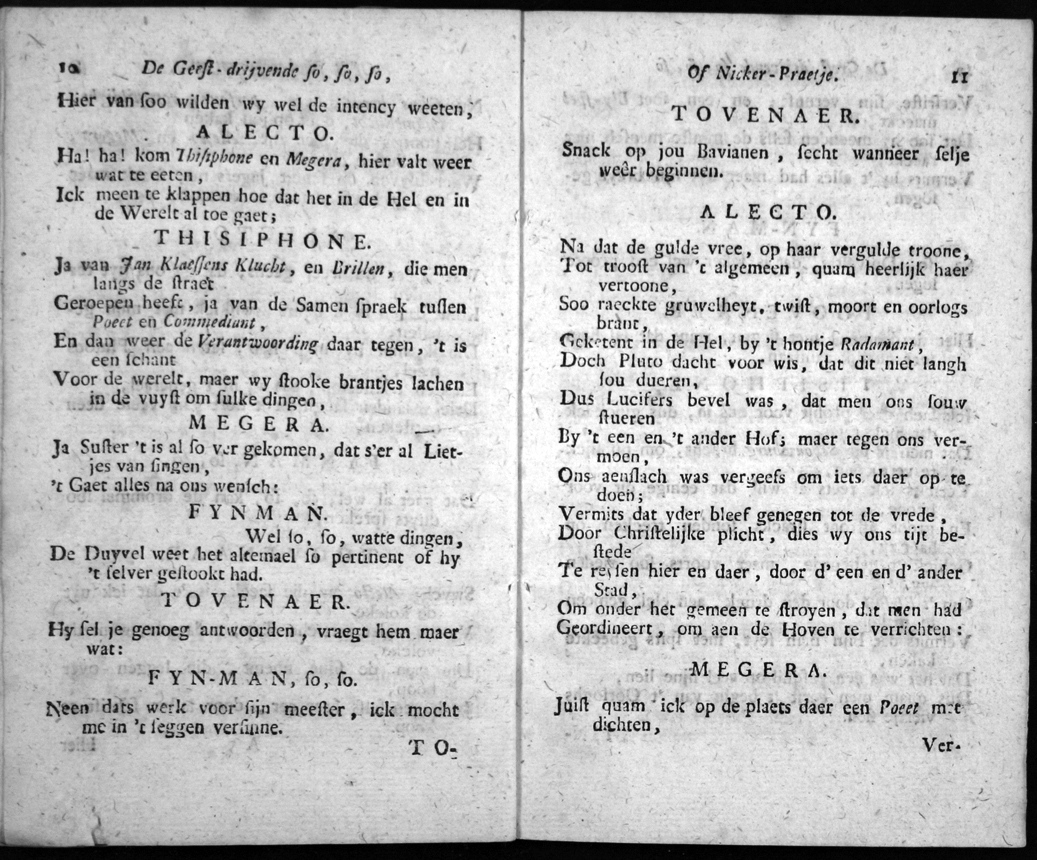 10 De Geeſt-drijvende ſo, ſo, ſo,
Hier van ſoo wilden wy wel de intency weeten,
ALECTO.
Ha! ha! kom Thiſiphone en Megera, hier valt weer
wat te eeten,
Ick meen te klappen hoe dat het in de Hel en in
de Werelt al toe gaet;
THISIPHONE.
Ja van Jan Klaeſſens Klucht, en Brillen, die men
langs de ſtraet
Geroepen heeft, ja van de Samen ſpraek tuſſen
Poeet en Commediant,
En dan weer de Verantwoording daar tegen, 't is
een ſchant
Voor de werelt, maer wy ſtooke brantjes lachen
in de vuyſt om ſulke dingen,
MEGERA.
Ja Suſter 't is al ſo ver gekomen, dat s'er al Liet-
jes van ſingen,
't Gaet alles na ons wenſch:
FYNMAN.
Wel ſo, ſo, watte dingen,
De Duyvel weet het altemael ſo pertinent of hy
't ſelver geſtookt had.
TOVENAER.
Hy ſel je genoeg antwoorden, vraegt hem maer
wat:
FYN-MAN, ſo, ſo.
Neen dats werk voor ſijn meeſter, ick mocht
me in 't ſeggen verſinne.
TO-
Of Nicker-Praetje. 11
TOVENAER.
Snack op jou Bavianen, ſecht wanneer ſelje
weêr beginnen.
ALECTO.
Na dat de gulde vree, op haar vergulde troone,
Tot trooſt van 't algemeen, quam heerlijk haer
vertoone,
Soo raeckte gruwelheyt, twiſt, moort en oorlogs
brant,
Geketent in de Hel, by 't hontje Radamant,
Doch Pluto dacht voor wis, dat dit niet langh
ſou dueren,
Dus Lucifers bevel was, dat men ons ſouw
ſtueren
By 't een en 't ander Hof; maer tegen ons ver-
moen,
Ons aenſlach was vergeefs om iets daer op te
doen;
Vermits dat yder bleef genegen tot de vrede,
Door Chriſtelijke plicht, dies wy ons tijt be-
ſtede
Te reyſen hier en daer, door d' een en d' ander
Stad,
Om onder het gemeen te ſtroyen, dat men had
Geordineert, om aen de Hoven te verrichten:
MEGERA.
Juiſt quam ick op de plaets daer een Poeet met
dichten,
Ver-